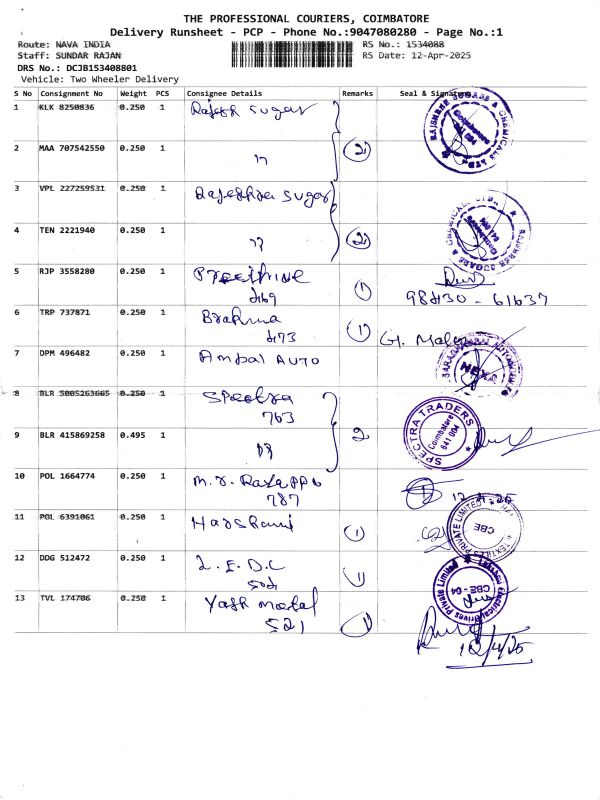 THE PROFESSIONAL COURIERS, COIMBATORE
Delivery Runsheet - PCP - Phone No.:9047080280 - Page No.:1
Route: NAVA INDIA RS No.: 1534088
Staff: SUNDAR RAJAN RS Date: 12-Apr-2025
DRS No.: DCJB153408801
Vehicle: Two Wheeler Delivery
S No Consignment No Weight PCS Consignee Details Remarks Seal & Signature
1 KLK 8250836 0.250 1 Rajesh sugar
RAJSHREE SUGARS & CHEMICALS LTD. Coimbatore 641 004
2 MAA 707542550 0.250 1 " 2
3 VPL 227259531 0.250 1 Rajeshree sugar
4 TEN 2221940 0.250 1 " 2
RAJSHREE SUGARS & CHEMICALS LTD. Coimbatore 641 004
5 RJP 3558280 0.250 1 1
98430 - 61637
6 TRP 737871 0.250 1 Brahma 1 G.
473
7 DPM 496482 0.250 1 Ambal AUTO
NEXA
8 BLR 5005263665 0.250 1 Spectra
763
SPECTRA TRADERS Coimbatore 641 004
9 BLR 415869258 0.495 1 " 2
10 POL 1664774 0.250 1 1
787 12-4-25
11 POL 6391061 0.250 1 Harshani 1
TEXTILES PRIVATE LIMITED CBE
12 DDG 512472 0.250 1 L.E.D.C 1
504
Lakshmi Electrical Drives Private Limited CBE - 04
13 TVL 174706 0.250 1 Yash metal 1
521 12/4/25